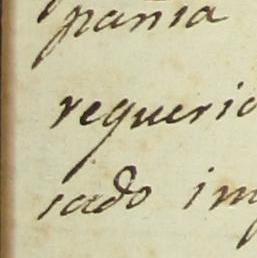 pania
requerio
sado im